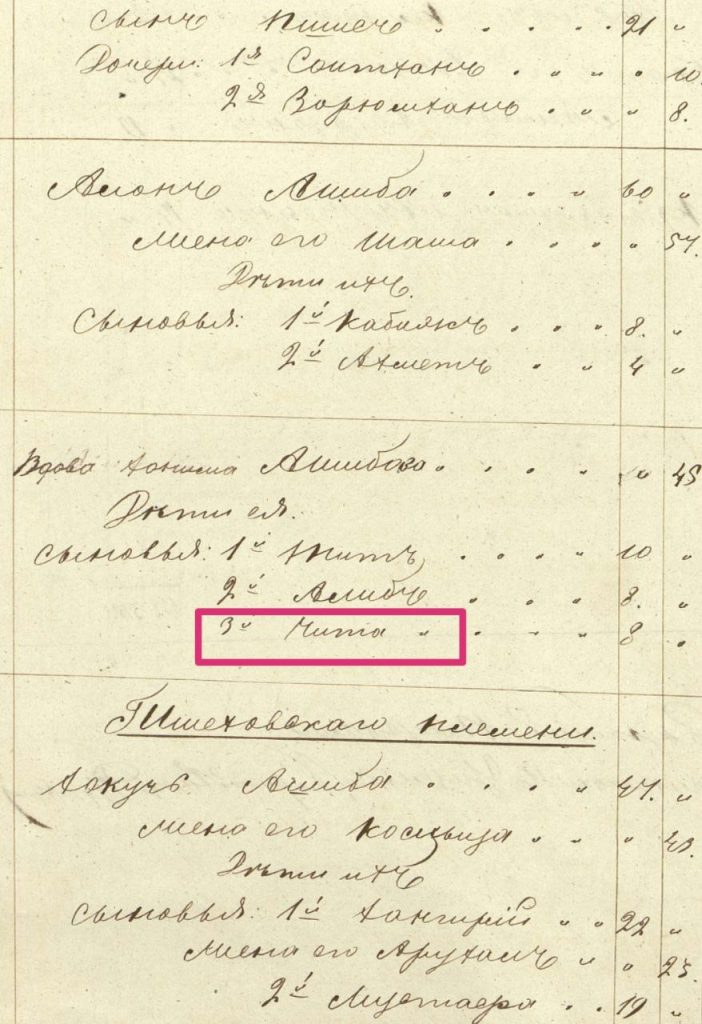 сынъ Пшиечъ . . . . . 21 "
Дочери: 1я Соитханъ . " " . 10
2я Зорюмтханъ . " " 8.
Алонъ Ашиба . . . " 60 "
жена его Шаша . . . " " 57.
Дѣти ихъ.
Сыновья: 1й Кабиякъ . . " 8. "
2й Ахметъ . " . 4 "
Вдова Ханима Ашибова . . . " " 45
Дѣти ея.
сыновья: 1й Титъ . . . " 10 "
2й Алибъ . . " 8. "
3й Чита " . " " 8 "
Пшеховскаго племени.
Хакучъ Ашиба . . . " 47. "
жена его Косзыца " . " " 43.
Дѣти ихъ
сыновья: 1й Хангирій " " 22 "
жена его Арухамъ " " 25.
2й Мустафа . . 19 "